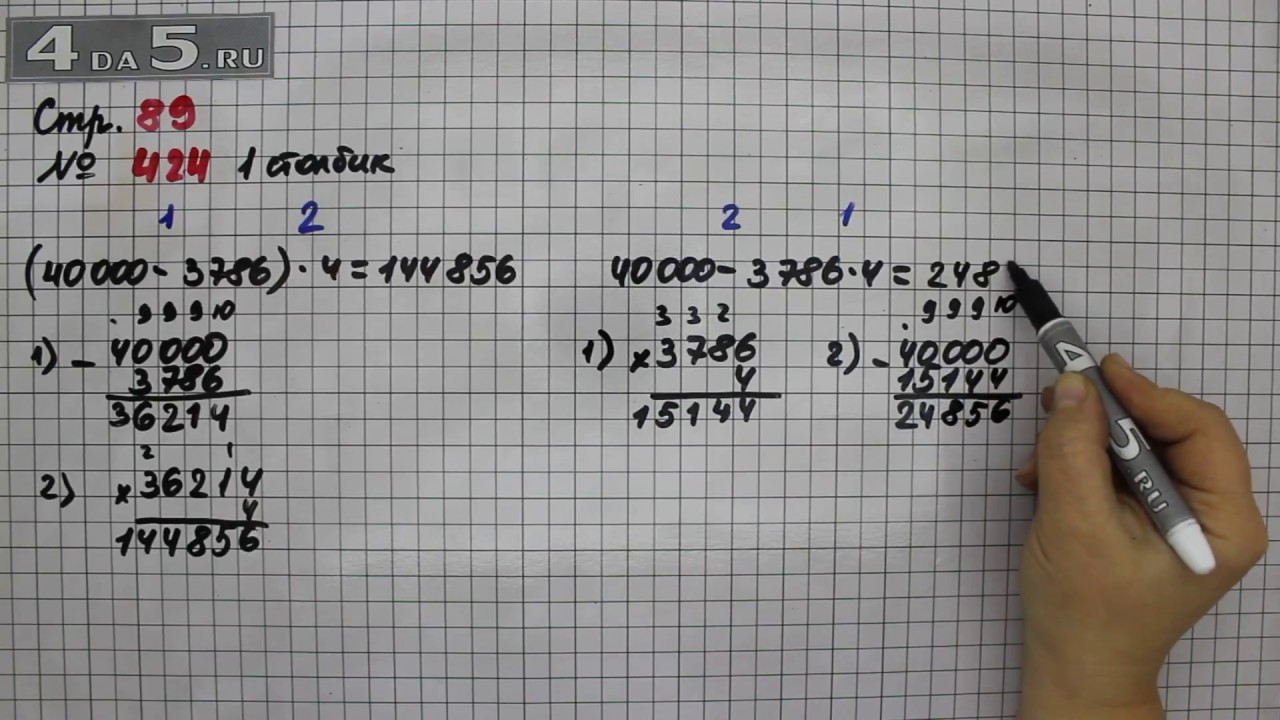 4DA5.RU
Стр. 89
№ 424 1 столбик
1 2
(40000 - 3786) · 4 = 144856
. 9 9 9 10
1) - 40000
3786
36214
2 1
2) × 36214
4
144856
2 1
40000 - 3786 · 4 = 248
3 3 2
1) × 3786
4
15144
. 9 9 9 10
2) - 40000
15144
24856
4 5.RU